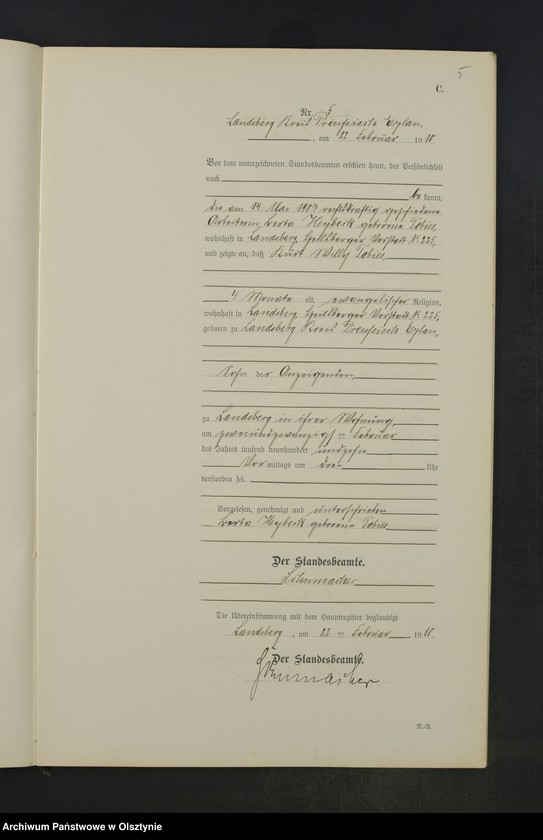 5
C.
Nr. 5
Landsberg Kreis Preußisch Eylau,
, am 22 Februar 1910.
Vor dem unterzeichneten Standesbeamten erschien heute, der Persönlichkeit
nach
be kannt,
die am 14 Mai 1907 rechtskräftig geschiedene
Arbeiterin Berta Heybeck geborene Tobies,
wohnhaft in Landsberg, Heilsberger Vorstadt N. 225,
und zeigte an, daß Kurt Willy Tobies
4 Monate alt, evangelischer Religion,
wohnhaft in Landsberg, Heilsberger Vorstadt N. 225,
geboren zu Landsberg Kreis Preußisch Eylau,
Sohn der Anzeigenden,
zu Landsberg in ihrer Wohnung,
am zweiundzwanzigsten Februar
des Jahres tausend neunhundert und zehn
Vor mittags um drei Uhr
verstorben sei.
Vorgelesen, genehmigt und unterschrieben
Berta Heybeck geborene Tobies
Der Standesbeamte.
Schumacher
Die Übereinstimmung mit dem Hauptregister beglaubigt
Landsberg, am 22 ten Februar 1910.
Der Standesbeamte.
Schumacher
N.-R.
Archiwum Państwowe w Olsztynie